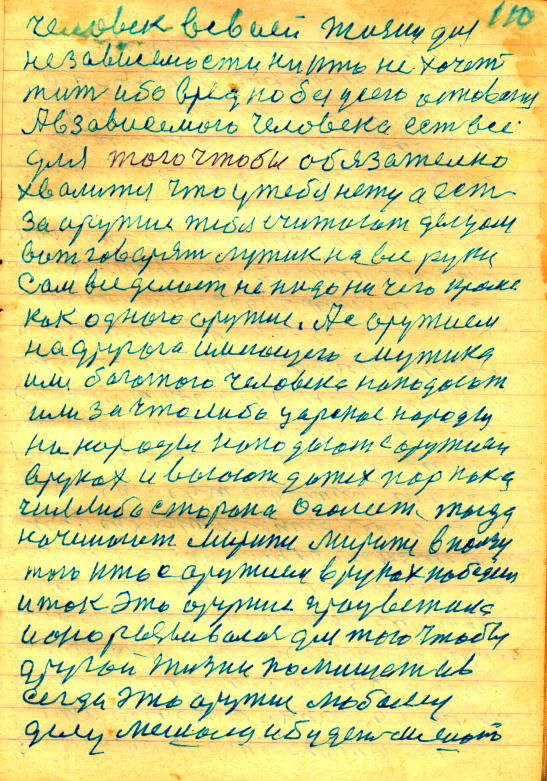 110
человек всвоей жизни для
независемости нихто не хочет
жит ибо вред но без усего оставатся
Авзависемого человека ест все
для того чтобы обязателно
хвалится что утебя нету а ест
за оружие тебя считают делцом
вот говарят мужик на все руки
сам все делает не надо ни чего кроме
как одного оружие. А с оружием
на другога имеющего мужика
или богатого человека нападают
или за что либо царские народы
на народы нападают соружием
вруках и воюют до тех пор пока
чия либа старана одолеет, тогда
начинают мирится мирится в ползу
того хто с оружием вруках победил
и так Это оружие процветала
и оно развивалас для того чтобы
другой жизни помешат ив
сегда Это оружие любому
делу мешала и будет мешат